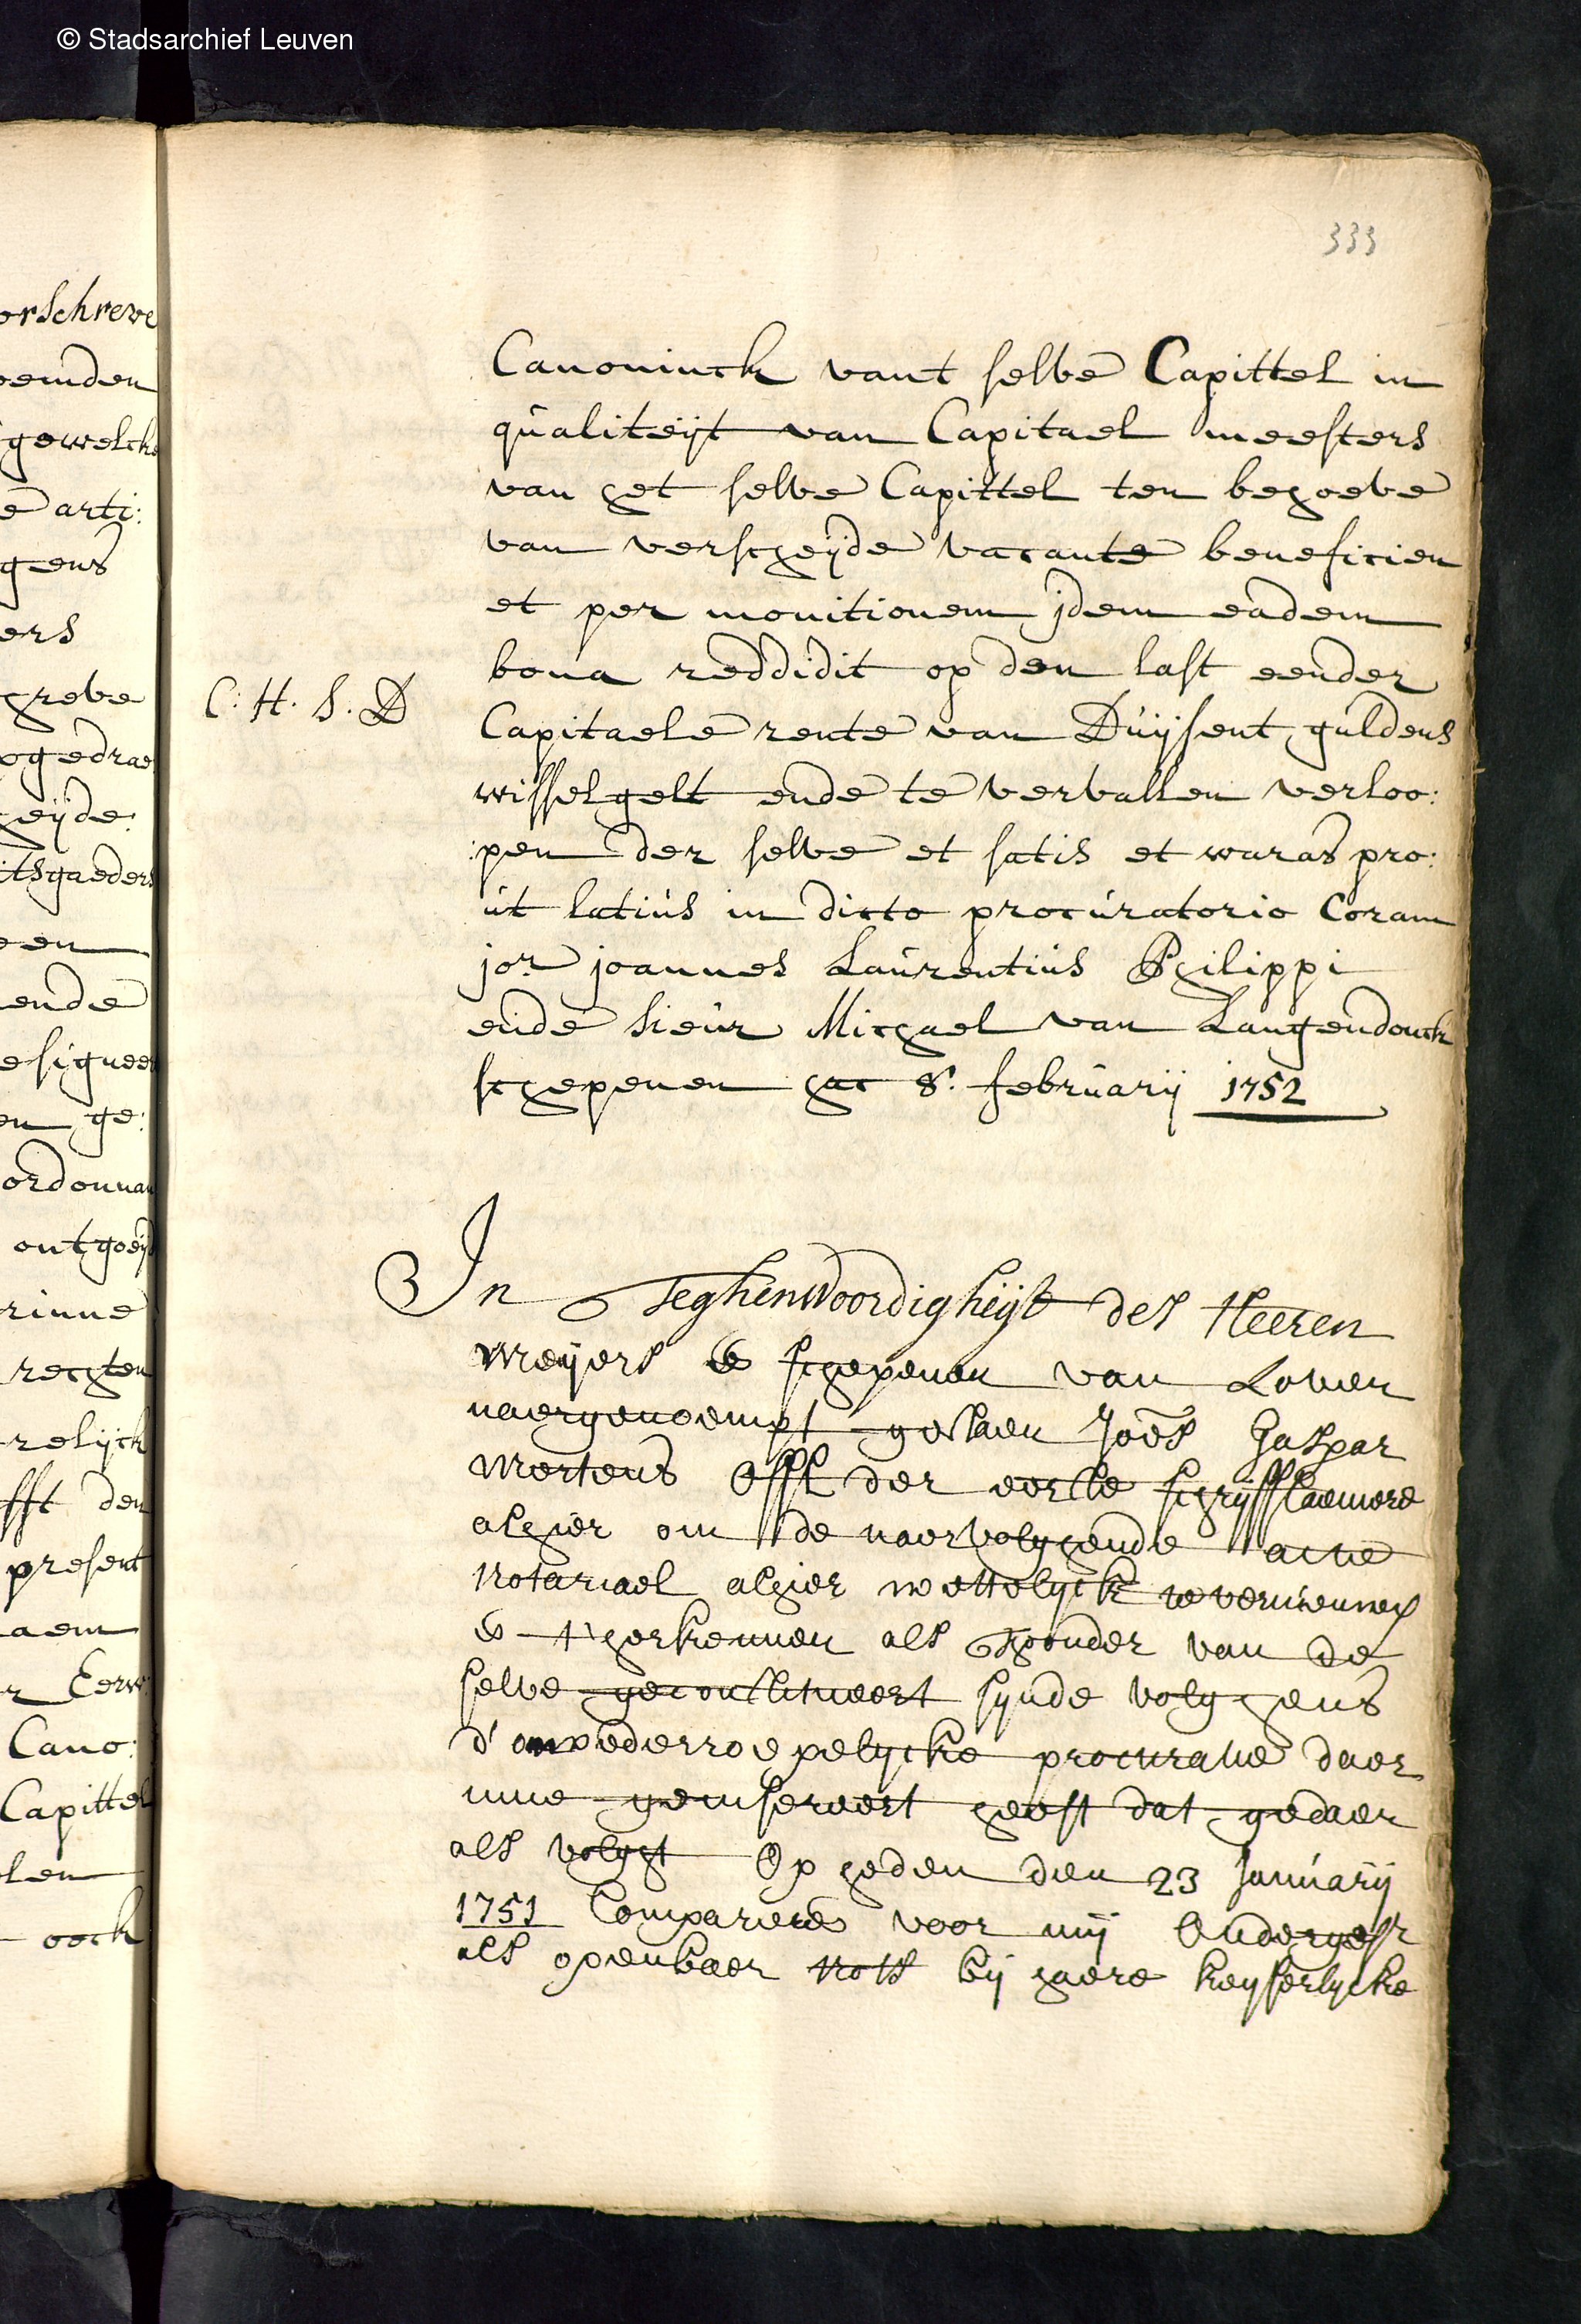 © Stadsarchief Leuven
333
orschreve
oemden
gewelcke
e arti:
gens
ers
hreve
pgedrae
heyde:
itsgaeders
een
ende
esignee
en ge:
ordonnan
ontgoeÿ
rinne
rechten
relijck
fft den
present
aem
r Eerw:
Cano:
Capittel
len
oock
Canoninck vant selve Capittel in
qualiteÿt van Capitael meesters
van het selve Capittel ten behoeve
van verscheÿde vacante beneficien
et per monitionem jdem eadem
bona reddidit op den last eender
C: H. S. D
Capitaele rente van Duÿsent guldens
wisselgelt ende te vervallen verloo:
:pen der selve et satis et waras pro:
ut latius in dicto procuratorio Coram
jor joannes Laurentius Philippi
ende Sieur Michael van Langendonck
schepenen hac 8. februarÿ 1752
In Teghenwoordigheÿt des Heeren
Meÿers & schepenen van Loven
naergenoempt gestaen Joes Gaspar
Mertens Offl der eerste schrÿffcaemere
alhier om de naervolghende acte
Notariael alhier wettelÿck te vernieuwen
& t'herkennen als Thoonder van de
selve geconstitueert sÿnde volghens
d'onwederroepelÿcke procuratie daer
inne geinsereert heeft dat gedaen
als volght Op heden den 23 januarÿ
1751 Comparere voor mÿ Onderghest
als openbaer Nots bÿ haere keÿserlÿcke